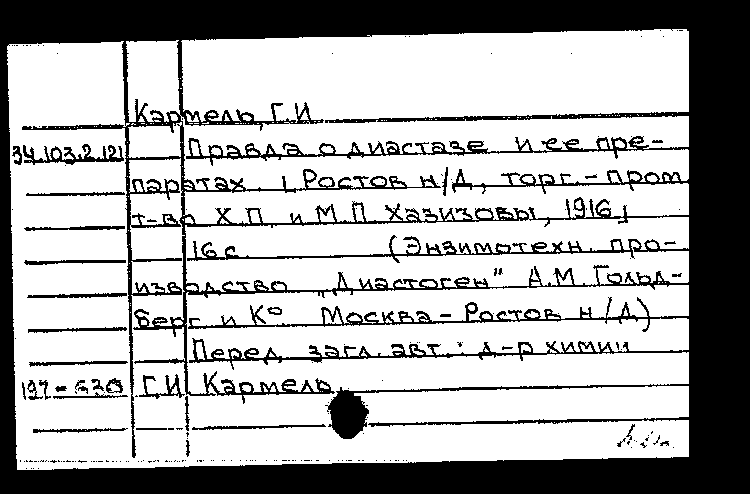 Кармель, Г.И
34.103.2.121 Правда о диастазе и ее пре-
паратах. [Ростов н/Д, торг.-пром
т-во Х.П. и М.П. Хазизовы, 1916]
16 с. (Энзимотехн. про-
изводство „Диастоген" А.М. Гольд-
берг и К° Москва - Ростов н/Д)
Перед загл. авт.: д-р химии
197-630 Г.И Кармель.